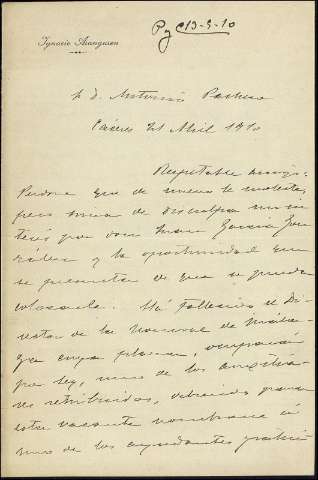 Ignacio Aranguren
P y C 13-5-10
S. D. Antonio Pacheco
Cáceres 21 Abril 1910
Respetable amigo:
Perdone que de nuevo le moleste,
pero sirva de disculpa mi in
terés por don Juan García Gon
zález y la oportunidad que
se presenta de que se pueda
colocarle. Ha fallecido el Di
rector de la Normal de Mála
ga cuya plaza, ocupará
por ley, uno de los auxilia
res retribuidos, debiendo para
esta vacante nombrarse á
uno de los ayudantes gratui